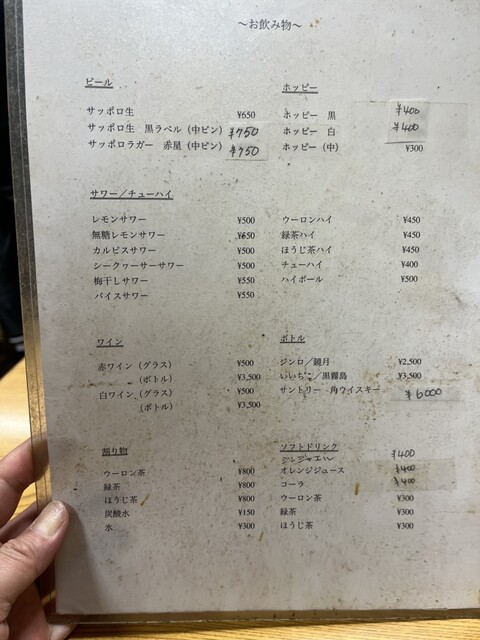 ～お飲み物～
ビール
サッポロ生 ¥650
サッポロ生 黒ラベル（中ビン） ¥750
サッポロラガー 赤星（中ビン） ¥750
ホッピー
ホッピー 黒 ¥400
ホッピー 白 ¥400
ホッピー（中） ¥300
サワー／チューハイ
レモンサワー ¥500
無糖レモンサワー ¥650
カルピスサワー ¥500
シークヮーサーサワー ¥500
梅干しサワー ¥550
バイスサワー ¥550
ウーロンハイ ¥450
緑茶ハイ ¥450
ほうじ茶ハイ ¥450
チューハイ ¥400
ハイボール ¥500
ワイン
赤ワイン（グラス） ¥500
（ボトル） ¥3,500
白ワイン（グラス） ¥500
（ボトル） ¥3,500
ボトル
ジンロ／鏡月 ¥2,500
いいちこ／黒霧島 ¥3,500
サントリー 角ウイスキー ¥6000
割り物
ウーロン茶 ¥800
緑茶 ¥800
ほうじ茶 ¥800
炭酸水 ¥150
氷 ¥300
ソフトドリンク
ジンジャエール ¥400
オレンジジュース ¥400
コーラ ¥400
ウーロン茶 ¥300
緑茶 ¥300
ほうじ茶 ¥300